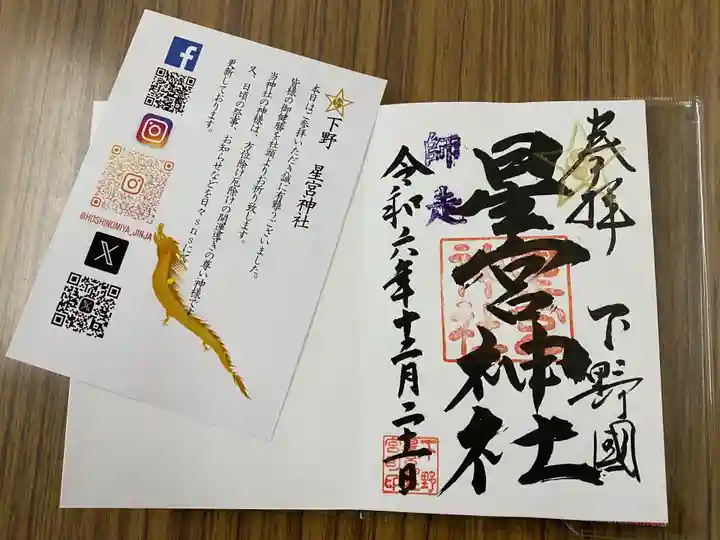 下野 星宮神社
本日はご参拝いただき誠に有難うございました。
皆様の御健勝を社頭よりお祈り致します。
当神社の神様は、方位除け厄除けの開運導きの尊い神様で
又、日頃の祭事、お知らせなどを日々snsにて
更新しております。
@HOSHINOMIYA_JINJA
奉拝 下野國
星宮神社
師走
令和六年十二月二十一日